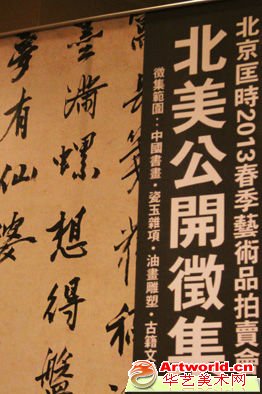 北京匡時2013春季藝術品拍賣會
北美公開徵集
徵集範圍：中國書畫·瓷玉雜項·油畫雕塑·古籍文
墨滿螺想得盤
夢有仙婆
Artworld.cn
华艺美术网